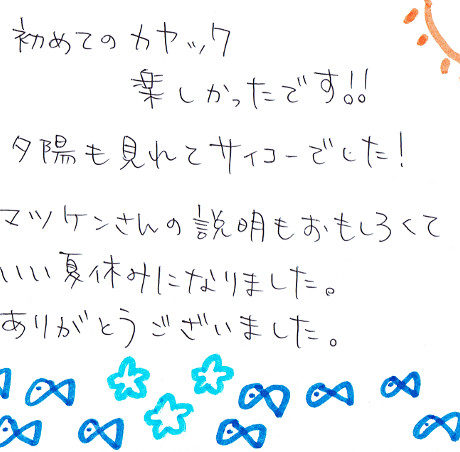 初めてのカヤック
楽しかったです!!
夕陽も見れてサイコーでした!
マツケンさんの説明もおもしろくて
いい夏休みになりました。
ありがとうございました。